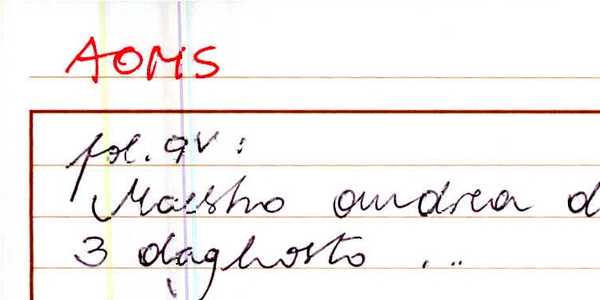 AOMS
fol. 9v:
Maestro andrea d
3 daghosto ...